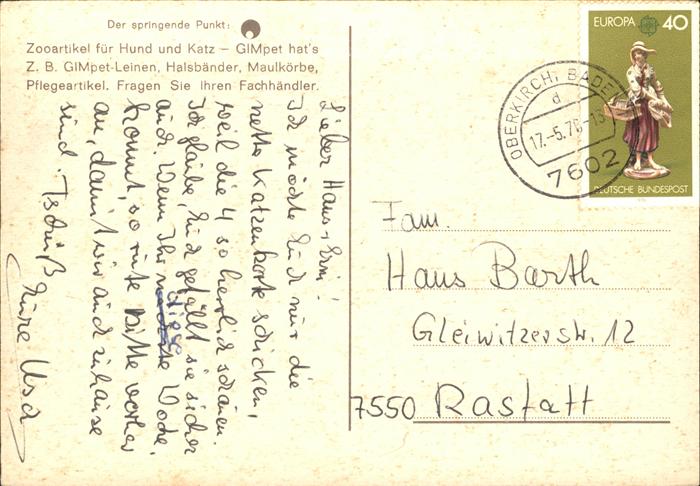 Der springende Punkt:
Zooartikel für Hund und Katz – GIMpet hat's
Z. B. GIMpet-Leinen, Halsbänder, Maulkörbe,
Pflegeartikel. Fragen Sie Ihren Fachhändler.
Lieber Hans, Erni!
Ich möchte Euch nur die
nette Katzenkarte schicken,
weil die 4 so herrlich schauen.
Ich glaube, Euch gefällt sie sicher
auch. Wenn Ihr diese Woche
kommt, so rufe bitte vorher
an, damit wir auch zuhause
sind. Tschüß
Eure
EUROPA 40
DEUTSCHE BUNDESPOST
OBERKIRCH, BADEN
d
17.-5.76-13
7602
Fam.
Hans Barth
Gleiwitzerstr. 12
7550 Rastatt